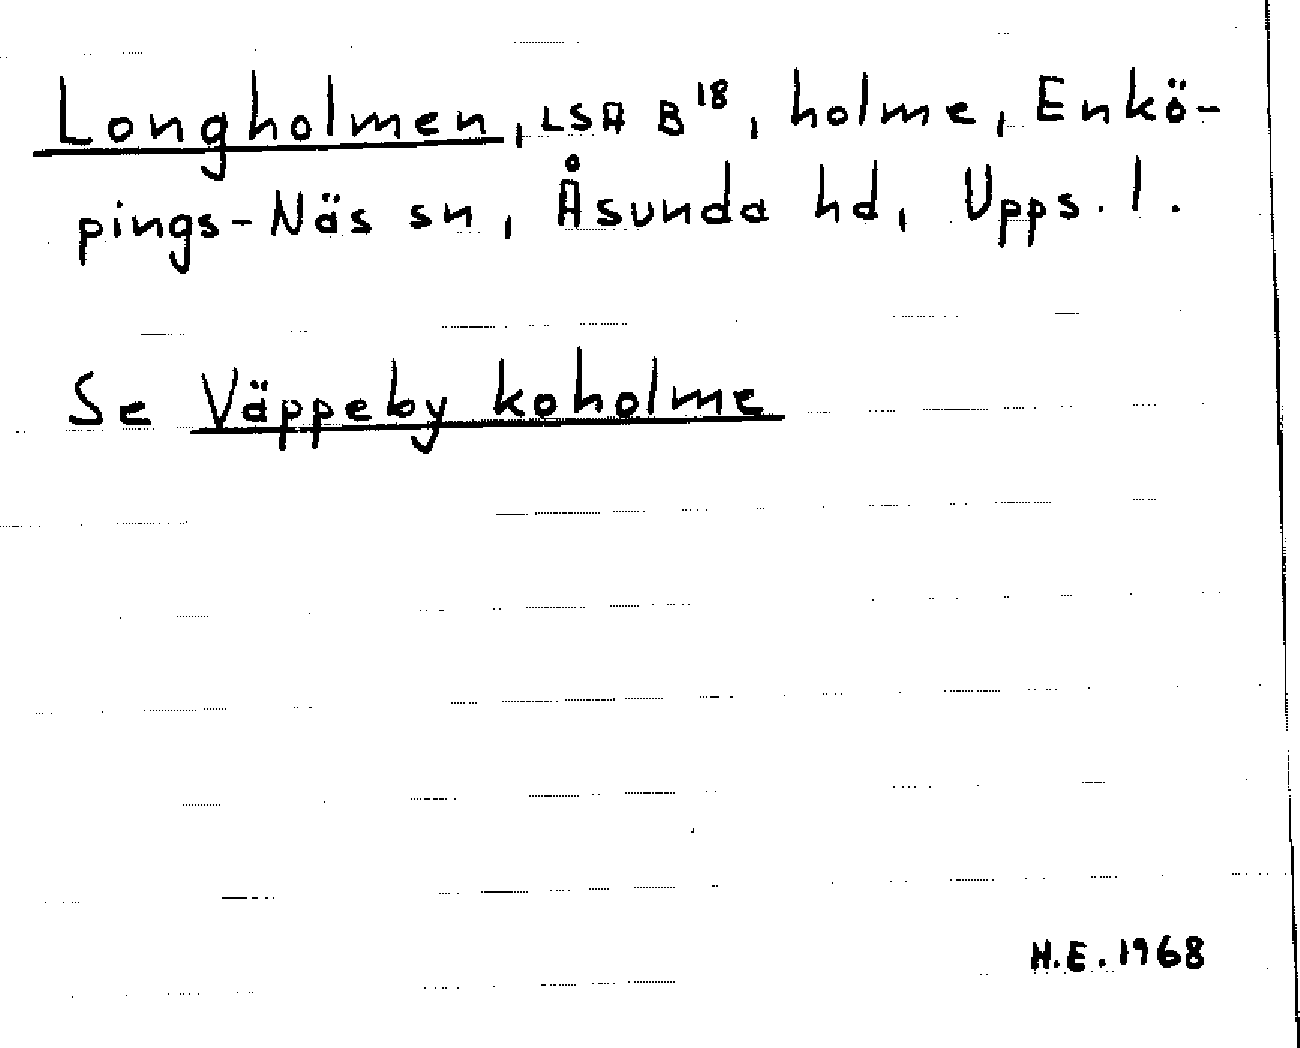 Longholmen, LSA B18, holme, Enkö-
pings-Näs sn, Åsunda hd, Upps. l.
Se Väppeby koholme
H.E. 1968